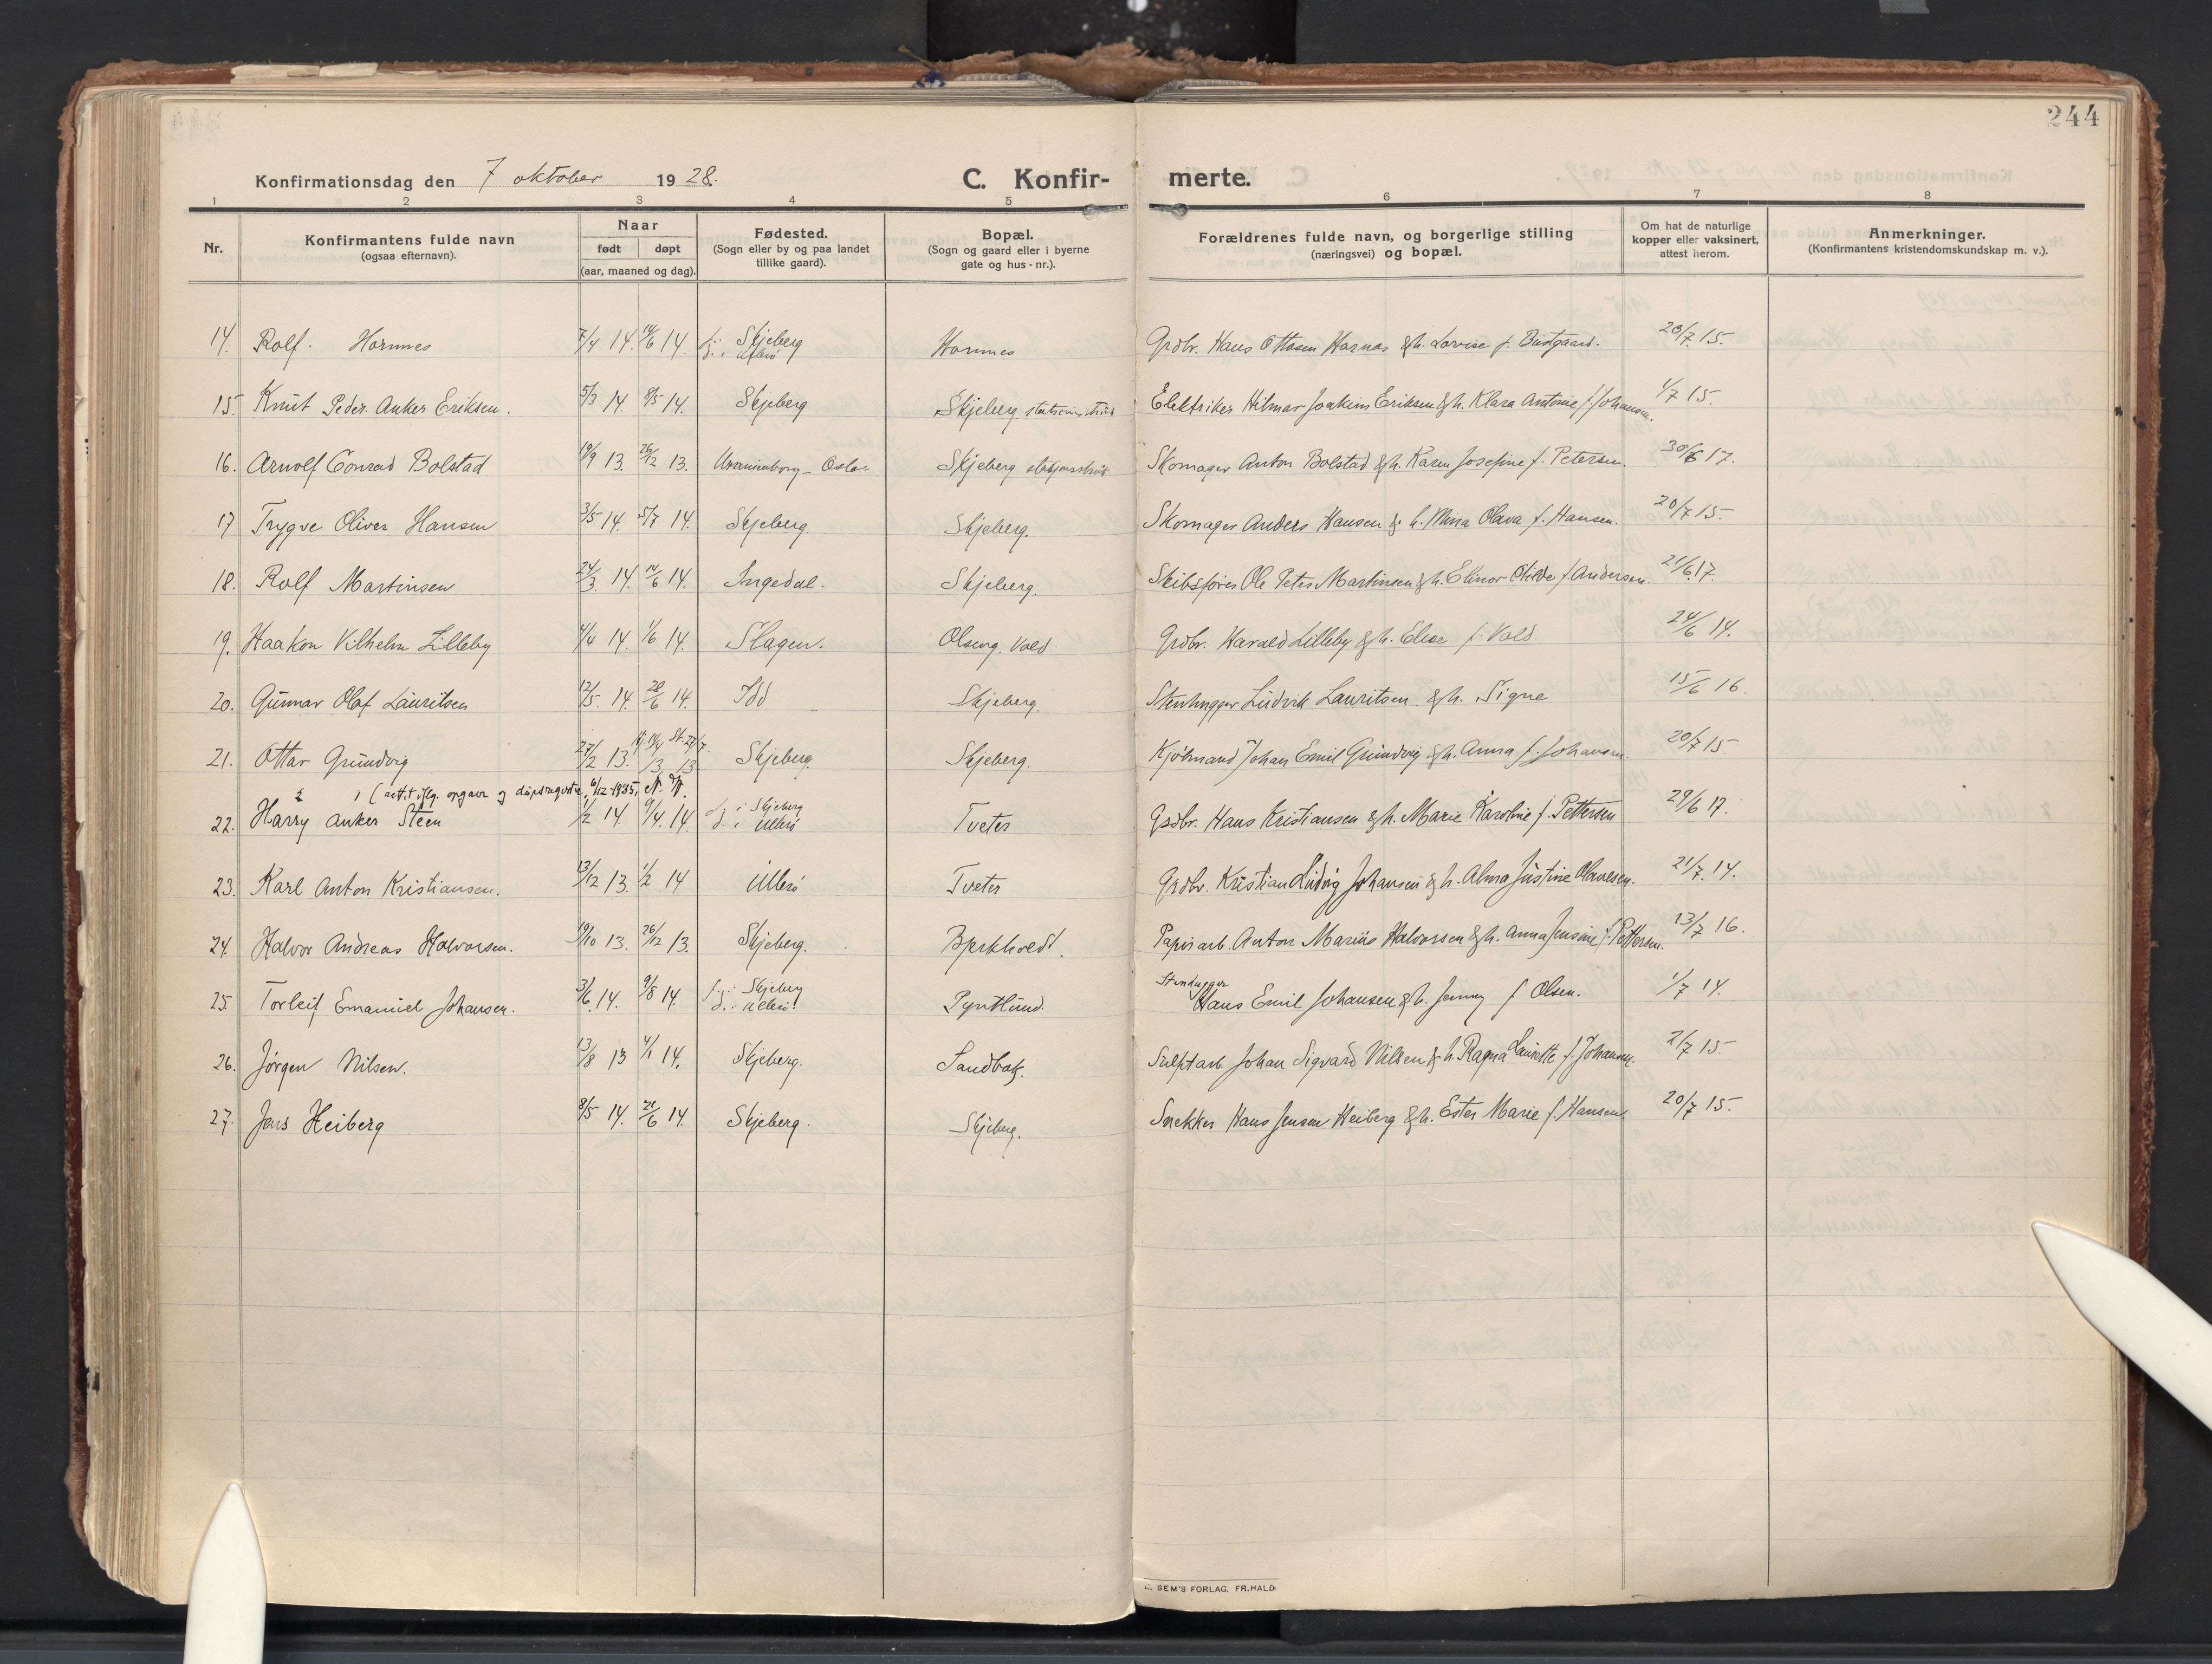 244
Konfirmationsdag den 7 oktober 1928.
C. Konfir- merte.
1 2 3 4 5 6 7 8
Nr.
Konfirmantens fulde navn
(ogsaa efternavn).
Naar
født døpt
(aar, maaned og dag).
Fødested.
(Sogn eller by og paa landet
tillike gaard).
Bopæl.
(Sogn og gaard eller i byerne
gate og hus - nr.).
Forældrenes fulde navn, og borgerlige stilling
(næringsvei) og bopæl.
Om hat de naturlige
kopper eller vaksinert,
attest herom.
Anmerkninger.
(Konfirmantens kristendomskundskap m. v.).
14. Rolf. Hornnes 7/4 14. 14/6 14. f. i Skjeberg d. i Ullerø Hornnes Grdbr. Hans Ottosen Hornæs & h. Lovise f. Bustgaard. 20/7 15.
15. Knut Peder Anker Eriksen. 5/3 14. 8/5 14. Skjeberg Skjeberg Elektriker Hilmar Joakim Eriksen & h. Klara Antonie f. Johansen. 1/7 15.
16. Arnolf Conrad Bolstad 19/9 13. 26/12 13. Uranienborg - Oslo. Skjeberg Skomager Anton Bolstad & h. Karen Josefine f. Petersen. 30/6 17.
17 Trygve Oliver Hansen 3/5 14. 5/7 14. Skjeberg. Skjeberg. Skomager Anders Hansen & h. Mina Olava f. Hansen. 20/7 15.
18. Rolf Martinsen 24/3. 14. 14/6 14. Ingedal. Skjeberg. Skibsfører Ole Peter Martinsen & h. Elinor Otilde f. Andersen. 21/6 17.
19. Haakon Vilhelm Lilleby 4/4 14. 1/6 14. Slagen. Olsvig. Vold. Grdbr. Harald Lilleby & h. Elise f. Vold 24/6 14.
20. Gunnar Olaf Lauritsen 12/5. 14. 28/6 14. Idd Skjeberg. Stenhugger Ludvik Lauritsen & h. Signe 15/6 16.
21. Ottar Grundvig 27/2 13. 13 13 Skjeberg. Skjeberg. Kjøbmand Johan Emil Grundvig & h. Anna f. Johansen. 20/7 15.
6/12-1935.
22. Harry Anker Steen 1/2 14. 9/4. 14. f. i Skjeberg d. i Ullerø Tveter Grdbr. Hans Kristiansen & h. Marie Karoline f. Pettersen 29/6 17.
23. Karl Anton Kristiansen. 13/12 13. 1/2 14 Ullerø Tveter Grdbr. Kristian Ludvig Johansen & h. Alma Justine Olavesen. 21/7. 14.
24. Halvor Andreas Halvorsen. 19/10 13. 26/12 13. Skjeberg. Bjerkholdt. Papirarb. Anton Marius Halvorsen & h. Anna Jensine f. Pettersen. 13/7 16.
25. Torleif Emanuel Johansen. 3/6. 14. 9/8 14. f. i Skjeberg d. i Ullerø! Pyntlund. Stenhugger Hans Emil Johansen & h. Jenny f. Olsen. 1/7 14.
26. Jørgen Nilsen. 13/8 13 4/1 14. Skjeberg. Sandbak. Sulfitarb. Johan Sigvard Nilsen & h. Ragna Laurette f. Johansen. 2/7 15.
27. Jens Heiberg 8/5 14. 21/6 14. Skjeberg. Skjeberg. Snekker Hans Jensen Heiberg & h. Ester Marie f. Hansen. 20/7 15.
SEM'S FORLAG, FR.HALD